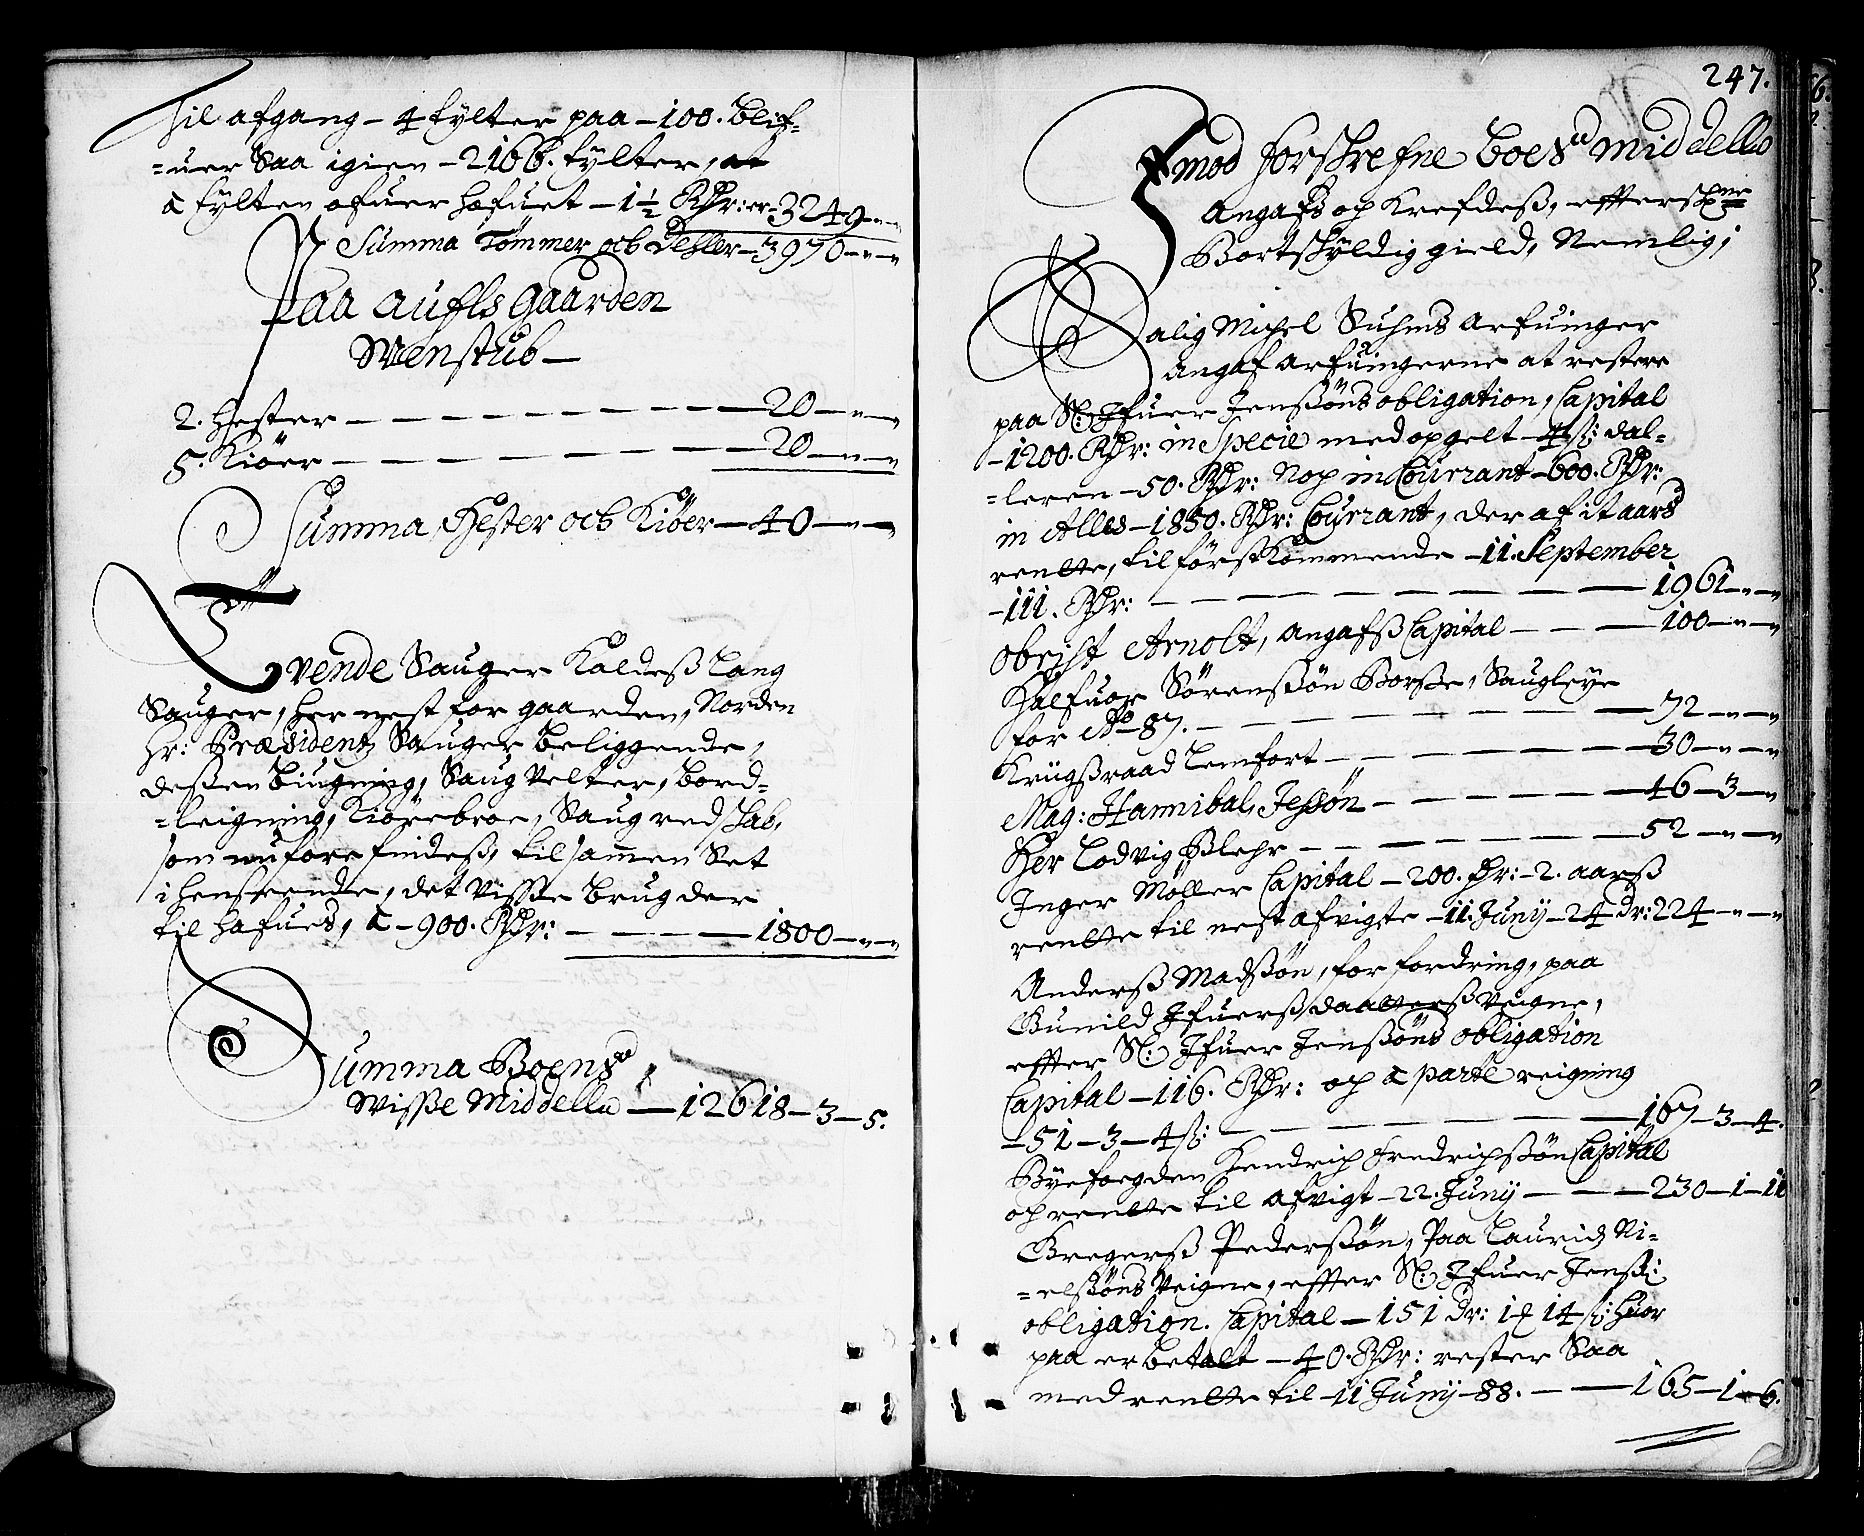 til afgang – 4 tylter paa – 100. blif-
=uer Saa igien – 2166. tylter, at
a tylten ofuer hofuet – 1½ Rdr: er – 3249 – „ – „
Summa Tømmer och Dehller – 3970 – „ – „
Paa Aufls Gaarden
Wenstub –
2. Hester – – – – – – 20 – „ – „
5. Kiøer – – – – – – 20 – „ – „
Summa Hester och Kiøer – 40 – „ – „
Tvende Sauger Kaldeß Lang
Sauger, her nest for gaarden, Norden
Hr: Præsidentz Sauger beliggende,
deßen biugning, Saug velter, bord-
=leigning, Kiørebroe, Saug redskab,
som nu fore findeß, tilsamen Set
i henseende, det visse brug der
til hafues, a – 900. Rdr: – – – – 1800 – „ – „
Summa Boens
Wisse Middelle – 12618 – 3 – 5.
247.
Imod forskrefne boes middelle
Angafs og Krefdeß, effterschne
Bortskyldig gield, Nemlig;
Salig Michel Suhms Arfuinger
Angaf arfuingerne at restere
paa Sl: Ifuer Jenßøns obligation, Capital
– 1200. Rdr: in Specie med opgelt – 4 ß: dal-
=leren – 50. Rdr: Nog in Courrant – 600. Rdr:
in Alles – 1850. Rdr: Courrant, der af it aars
rentte, til førstkommende – 11. September
– 111. Rdr: – – – – – – 1961 – „ – „
Obrist Arnolt, angafß Capital – – – 100 – „ – „
Halfuor Sørenßøn Borße, Saugleye
for Ao 87. – – – – – – 72 – „ – „
Krigßraad Lemfort – – – – – 30 – „ – „
Mag: Hannibal Jeßøn – – – – – 46 – 3 – „
Her Lodvig Blehr – – – – – 52 – „ – „
Inger Møller Capital – 200. Dr: – 2. aarß
rentte til nest afvigte – 11. Juny – 24 dr: 224 – „ – „
Anderß Madßøn, for fordring, paa
Gunild Ifuerßdaatterß veigne,
effter Sl: Ifuer Jenßøns obligation
Capital – 116. Rdr: og a parte reigning
– 51 – 3 – 4 ß: – – – – – 167 – 3 – 4.
Byefogden Hendrich Fredrichßøn Capital
og rentte til afvigt – 22. Juny – – – 230 – 1 – 11
Gregerß Pederßøn, Paa Lauridz Ni-
=elßøns veigne, effter Sl: Ifuer Jenß:
obligation. Capital – 151 Dr: 1 ₰ 14 ß: huor
paa er betalt – 40. Rdr: rester Saa
med rentte til – 11 Juny – 88. – – 165 – 1 – 6.